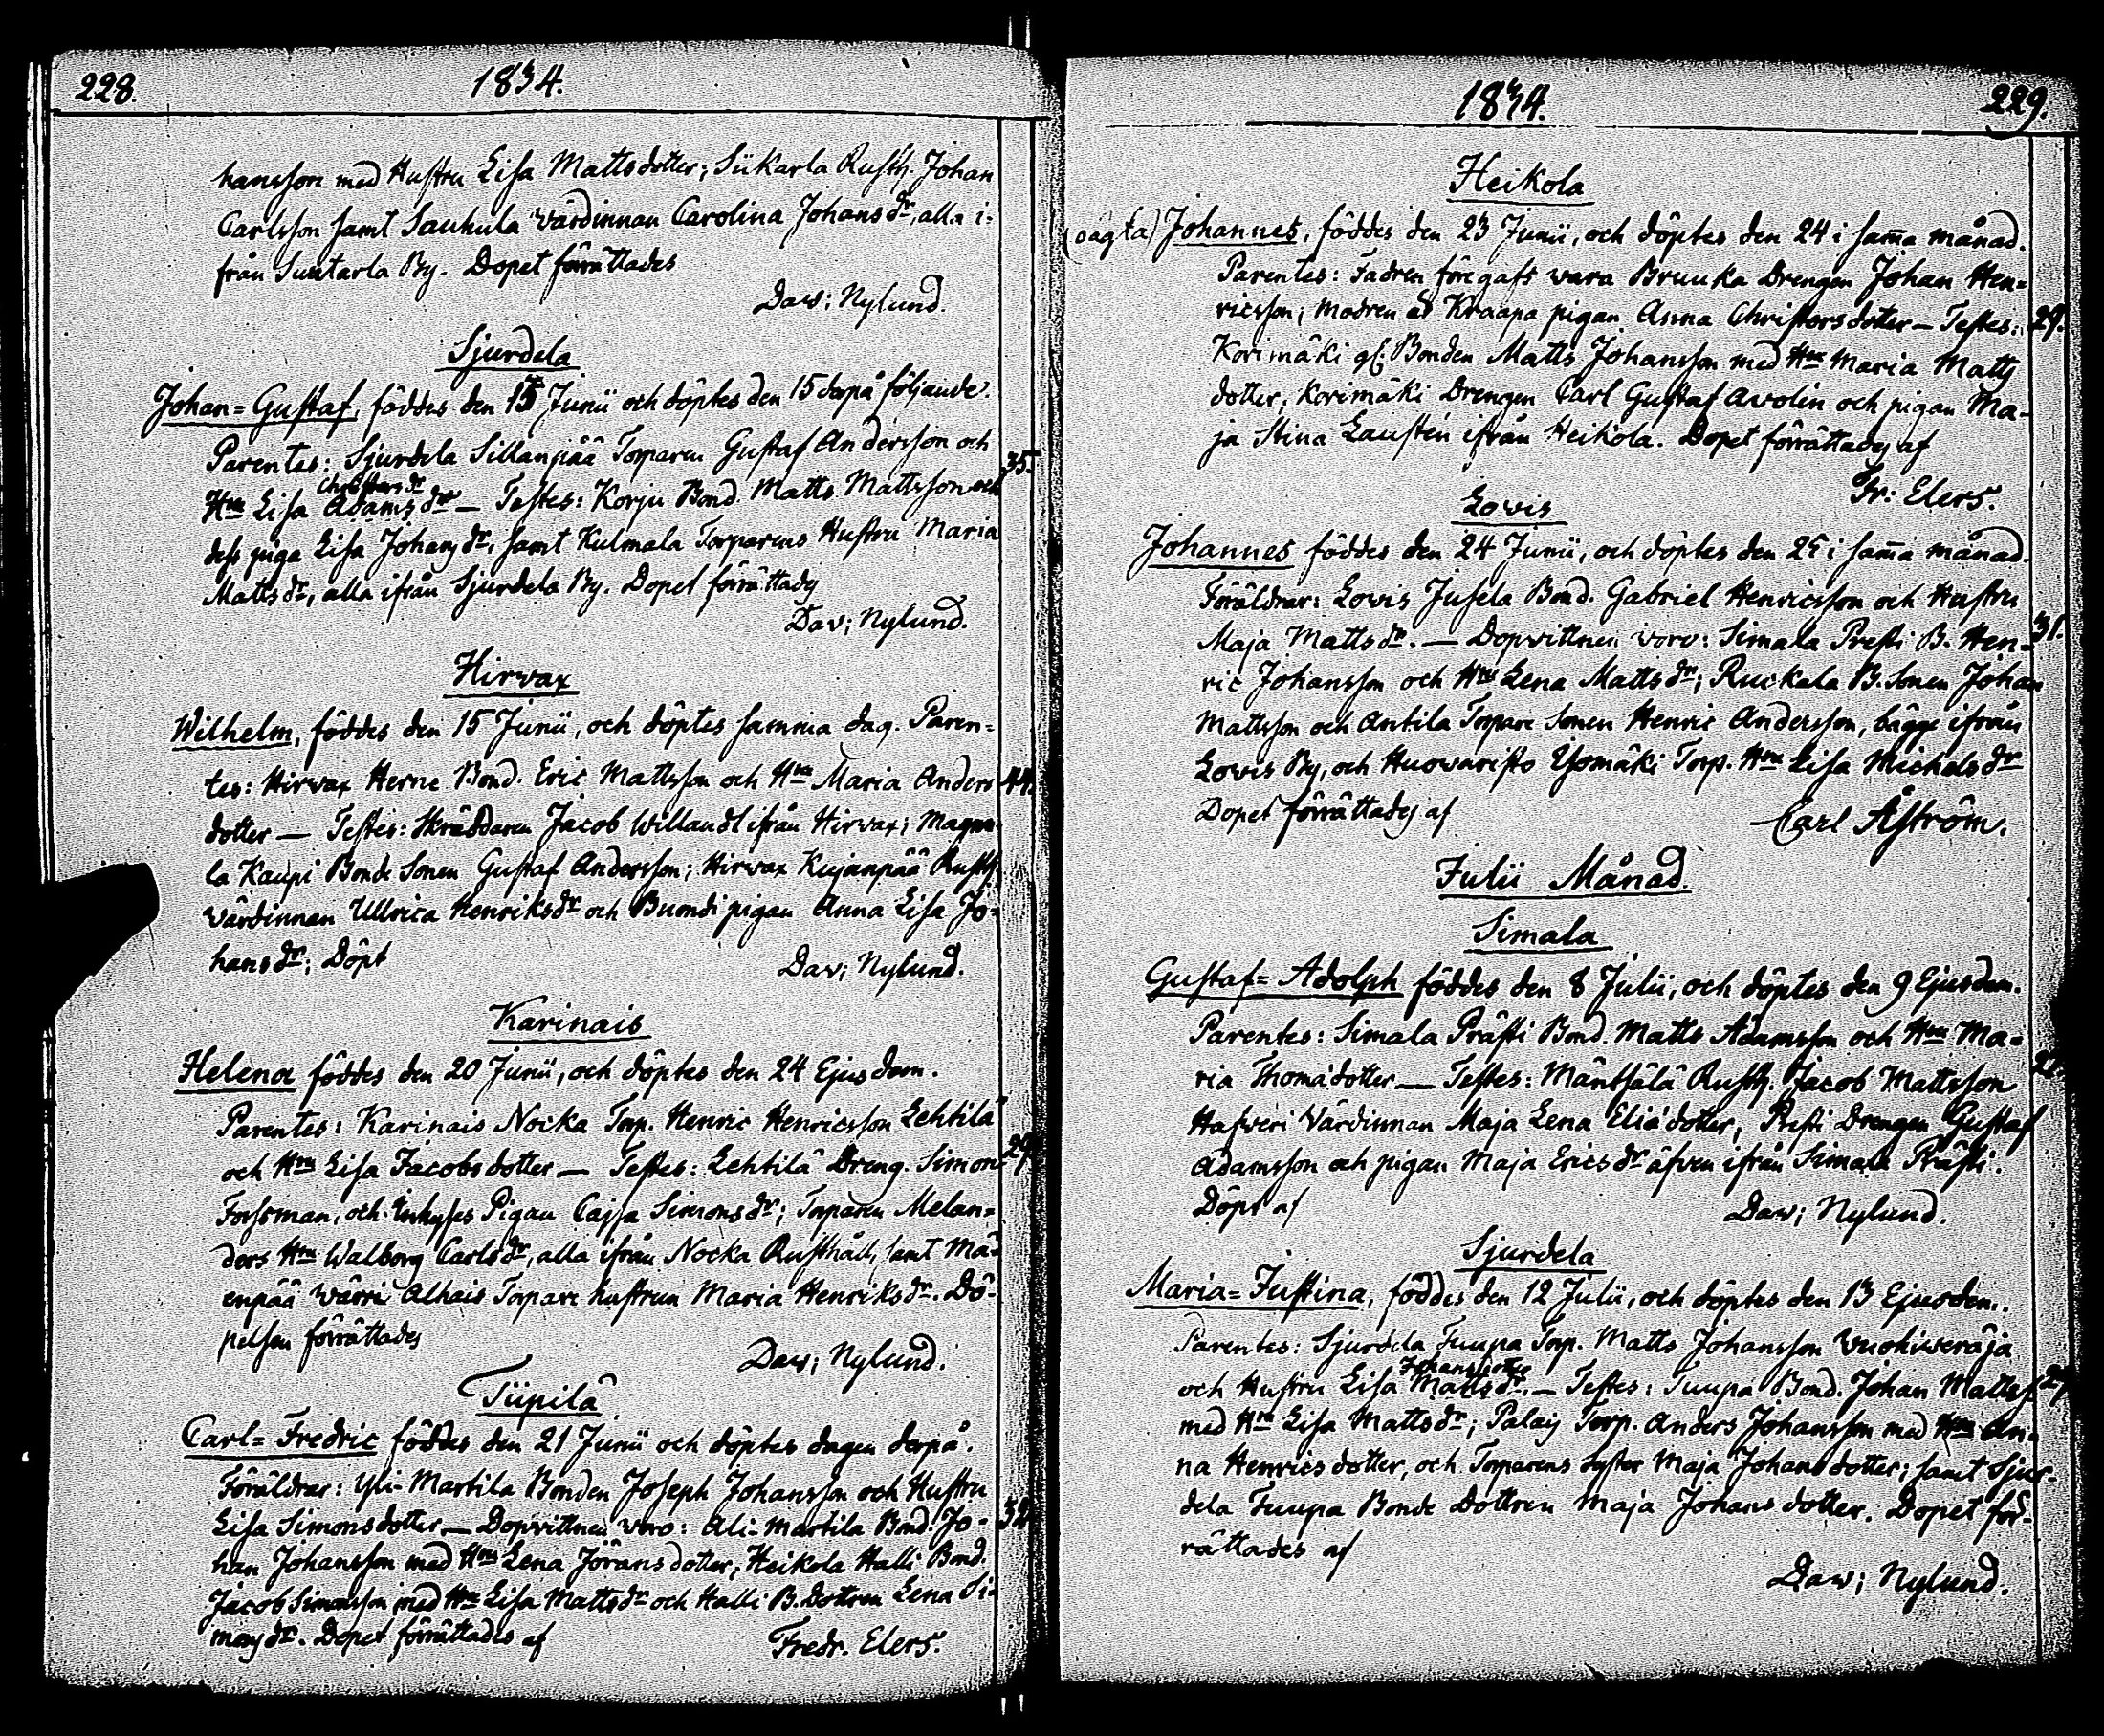 228.
1834.
hansson med Hustru Lisa Mattsdotter; Siikarla Rusth. Johan
Carlsson samt Sauhula Värdinnan Carolina Johansdr, alla i-
från Suutarla By. Dopet förrättades
Daw; Nylund.
Sjurdela
Johan=Gustaf, föddes den 15 Junii och döptes den 15 derpå följande.
Parentes: Sjurdela Sillanpää Torparen Gustaf Andersson och
Christersdr
Hru Lisa Adamsdr — Testes: Korju Bond. Matts Mattsson och
35.
dess piga Lisa Johansdr, samt Kulmala Torparens Hustru Maria
Mattsdr, alla ifrån Sjurdela By. Dopet förrättades
Dav; Nylund.
Hirvax
Wilhelm, föddes den 15 Junii, och döptes samma dag. Paren=
tes: Hirvax Herne Bond. Eric Mattsson och Hru Maria Anders
44.
dotter — Testes: Skräddaren Jacob Willandt ifrån Hirvax; Magnu-
la Kaupi Bonde Sonen Gustaf Andersson; Hirvax Kujanpää Rusth.
Värdinnan Ullrica Henriksdr och Buondi pigan Anna Lisa Jo-
hansdr; Döpt
Dav; Nylund.
Karinais
Helena föddes den 20 Junii, och döptes den 24 Ejusdem.
Parentes: Karinais Nocka Torp. Henric Henricsson Lehtilä
och Hru Lisa Jacobsdotter — Testes: Lehtilä Dreng. Simon
29.
Forssman, och Inhyses Pigan Cajsa Simonsdr; Torparen Melan=
ders Hru Walborg Carlsdr, alla ifrån Nocka Rusthåll, samt Mä-
enpää Wärri Alhais Torpare hustrun Maria Henriksdr. Dö-
pelsen förrättades
Daw; Nylund.
Tiipilä
Carl=Fredric föddes den 21 Junii och döptes dagen derpå.
Föräldrar: Yli-Martila Bonden Joseph Johansson och Hustru
Lisa Simonsdotter — Dopvittnen voro: Ali-Martila Bond. Jo-
32.
han Johansson med Hru Lena Jöransdotter, Heikola Halli Bond.
Jacob Simonsson med Hru Lisa Mattsdr och Halli B. Dottren Lena Si-
monsdr. Dopet förrättades af
Fredr. Elers.
1834.
229.
Heikola
(oägta) Johannes, föddes den 23 Junii, och döptes den 24 i samma månad.
Parentes: Fadren föregafs vara Bruuka Drengen Johan Hen=
ricsson; modren är Kraapa pigan Anna Christersdotter — Testes:
29.
Korimäki gl. Bonden Matts Johansson med Hru Maria Matts
dotter; Korimäki Drengen Carl Gustaf Avolin och pigan Ma-
ja Stina Lausten ifrån Heikola. Dopet förrättades af
Fr: Elers.
Lowis
Johannes föddes den 24 Junii, och döptes den 25 i samma månad.
Föräldrar: Lowis Jusela Bond. Gabriel Henricsson och Hustru
Maja Mattsdr. — Dopvittnen voro: Simala Presti B. Hen-
31.
ric Johansson och Hru Lena Mattsdr; Ruckala B. Sonen Johan
Mattsson och Antila Torpare Sonen Henric Andersson, bägge ifrån
Lowis By, och Huowaristo Isomäki Torp. Hru Lisa Michelsdr
Dopet förrättades af
Carl Åström.
Julii Månad.
Simala
Gustaf=Adolph föddes den 8 Julii, och döptes den 9 Ejusdem.
Parentes: Simala Prästi Bond. Matts Adamsson och Hru Ma=
ria Thomädotter — Testes: Mäntsälä Rusth. Jacob Mattsson
27.
Hafveri Värdinnan Maja Lena Eliædotter, Presti Drengen Gustaf
Adamsson och pigan Maja Ericsdr äfven ifrån Simala Prästi.
Döpt af
Daw; Nylund.
Sjurdela
Maria=Justina, föddes den 12 Julii, och döptes den 13 Ejusdem.
Parentes: Sjurdela Tuupa Torp. Matts Johansson Vuohiweräjä
Johansdotter
och Hustru Lisa Mattsdr. — Testes: Tuupa Bond. Johan Mattss.
27.
med Hru Lisa Mattsdr; Palais Torp. Anders Johansson med Hru An-
na Henricsdotter, och Torparens syster Maja Johansdotter; samt Sjur-
dela Tuupa Bonde Dottren Maja Johansdotter. Dopet för-
rättades af
Daw; Nylund.